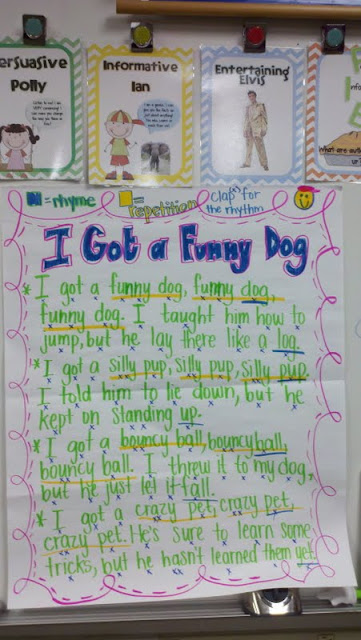 Persuasive
Polly
Informative
Ian
Entertaining
Elvis
= rhyme
= repetition
clap for
the rhythm
I Got a Funny Dog
* I got a funny dog, funny dog,
funny dog. I taught him how to
jump, but he lay there like a log.
* I got a silly pup, silly pup, silly pup.
I told him to lie down, but he
kept on standing up.
* I got a bouncy ball, bouncy ball,
bouncy ball. I threw it to my dog,
but he just let it fall.
* I got a crazy pet, crazy pet,
crazy pet. He's sure to learn some
tricks, but he hasn't learned them yet.